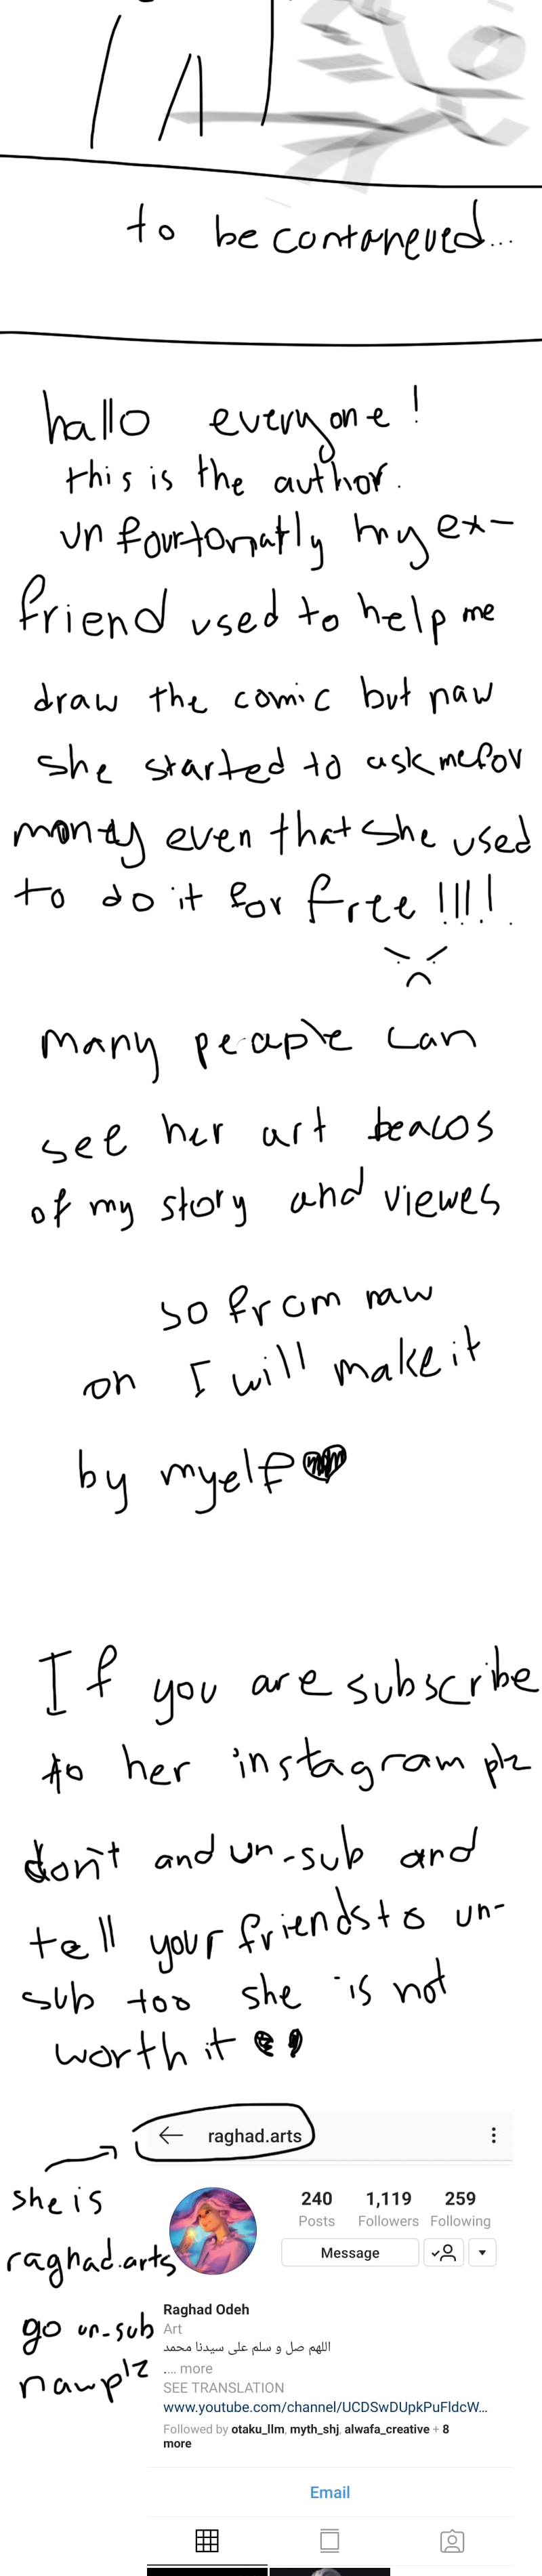 to be contaneued...
hallo everyone!
this is the author.
unfourtonatly my ex-
friend used to help me
draw the comic but naw
she started to ask me for
money even that she used
to do it for free !!!!
many peaple can
see her art beacos
of my story and viewes
so from naw
on I will make it
by myelf
If you are subscribe
to her instagram plz
don't and un-sub and
tell your friends to un-
sub too she is not
worth it
raghad.arts
she is
raghad.arts
go un-sub
naw plz
240 1,119 259
Posts Followers Following
Message
Raghad Odeh
Art
اللهم صل و سلم على سيدنا محمد
.... more
SEE TRANSLATION
www.youtube.com/channel/UCDSwDUpkPuFldcW...
Followed by otaku_llm, myth_shj, alwafa_creative + 8
more
Email